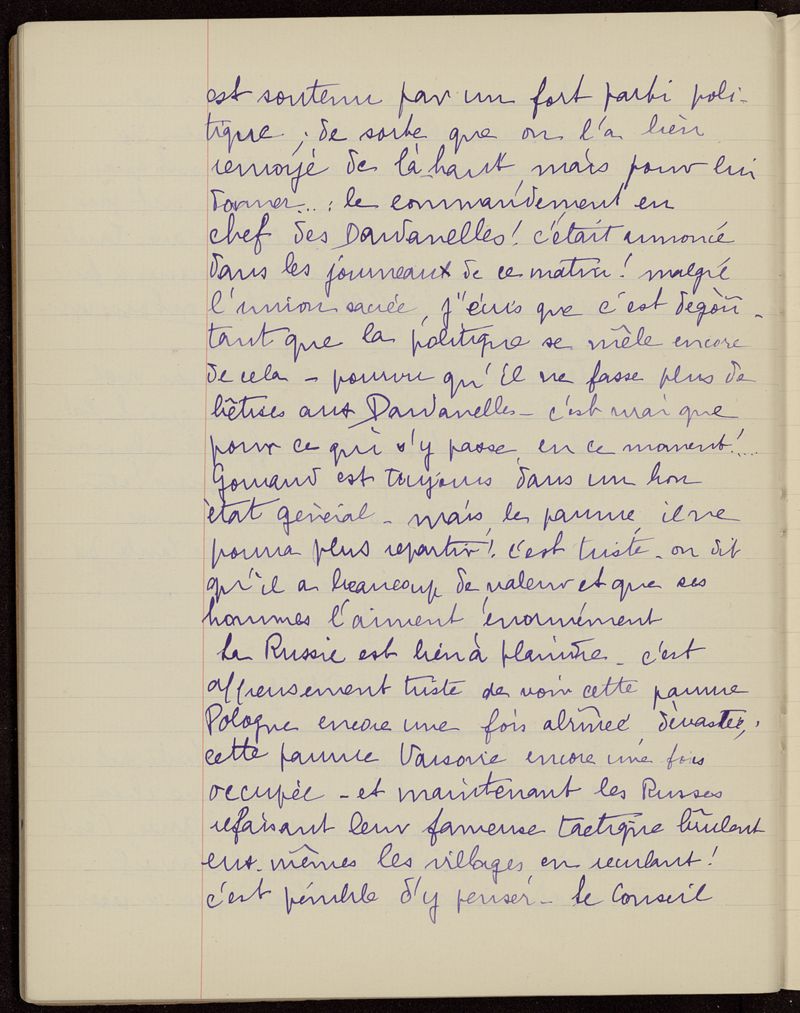 est soutenu par un fort parti poli-
tique ; de sorte que on l'a bien
renvoyé de là-haut, mais pour lui
donner... : le commandement en
chef des Dardanelles ! c'était annoncé
dans les journeaux de ce matin ! malgré
l'union sacrée, j'écris que c'est dégoû-
tant que la politique se mêle encore
de cela - pourvu qu'il ne fasse plus de
bêtises aux Dardanelles - c'est vrai que
pour ce qui s'y passe, en ce moment !...
Gouraud est toujours dans un bon
état général - mais, le pauvre, il ne
pourra plus repartir ! c'est triste - on dit
qu'il a beaucoup de valeur et que ses
hommes l'aiment énormément
La Russie est bien à plaindre - c'est
affreusement triste de voir cette pauvre
Pologne encore une fois abîmée, dévastée,
cette pauvre Varsovie encore une fois
occupée - et maintenant les Russes
refaisant leur fameuse tactique brûlent
eux-mêmes les villages, en reculant !
c'est pénible d'y penser - Le Conseil